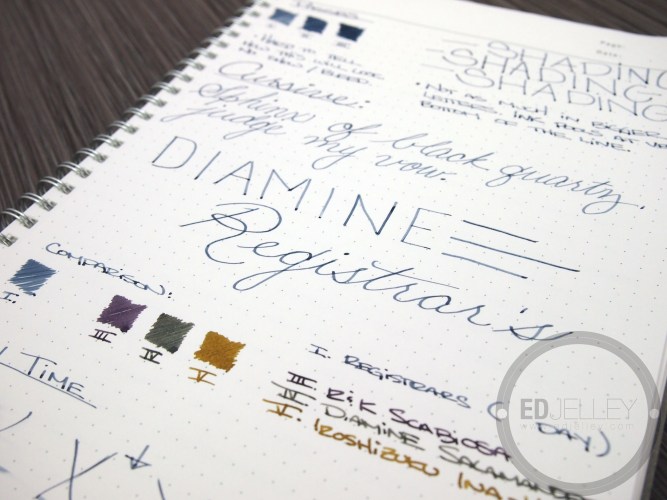 PAGE:
DATE:
SHADING
SHADING
SHADING
- HARD TO TELL
HOW THIS WILL
SHOW / BLEED.
- NOT AS MUCH IN BIGGER
LETTERS. INK POOLS AT
BOTTOM OF THE LINE.
Cursive:
Sphinx of black quartz,
judge my vow.
DIAMINE
Registrar's
COMPARISON:
I.
III
IV
V
TIME
I. REGISTRARS ( DAY)
III. R&K SCABIOSA
IV. DIAMINE SALAMAND
V. IROSHIZUKU INA
EDJELLEY